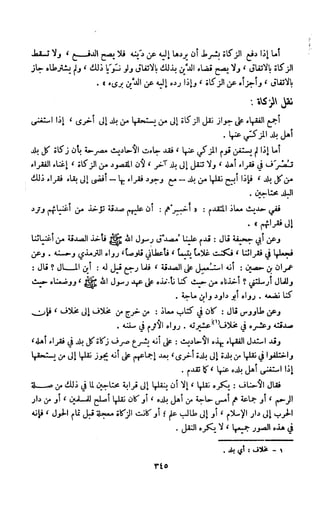 أما إذا دفع الزكاة بشرط أن يردها إليه عن دينه فلا يصح الدفع ، ولا تسقط
الزكاة بالاتفاق ، ولا يصح قضاء الدين بذلك بالاتفاق ولو نويا ذلك ، ولم يشترطاه جاز
بالاتفاق ، وأجزأه عن الزكاة ، وإذا رده إليه عن الدين برىء ».
نقل الزكاة :
أجمع الفقهاء على جواز نقل الزكاة إلى من يستحقها من بلد إلى أخرى ، إذا استغنى
أهل بلد المزكي عنها .
أما إذا لم يستغن قوم المزكي عنها ، فقد جاءت الأحاديث مصرحة بأن زكاة كل بلد
تصرف في فقراء أهله ، ولا تنقل إلى بلد آخر ، لأن المقصود من الزكاة ، إغناء الفقراء
من كل بلد ، فإذا أبيح نقلها من بلد – مع وجود فقراء بها – أفضى إلى بقاء فقراء ذلك
البلد محتاجين .
ففي حديث معاذ المتقدم : « أخبرهم : أن عليهم صدقة تؤخذ من أغنيائهم وترد
إلى فقرائهم » .
وعن أبي جحيفة قال : قدم علينا مصدق رسول الله ﷺ فأخذ الصدقة من أغنيائنا
فجعلها في فقرائنا ، فكنت غلاماً يتيماً ، فأعطاني قلوصاً ، رواه الترمذي وحسنه . وعن
عمران بن حصين : أنه استعمل على الصدقة ، فلما رجع قيل له : أين المال ؟ قال :
وللمال أرسلتني ؟ أخذناه من حيث كنا نأخذه على عهد رسول الله ﷺ ، ووضعناه حيث
كنا نضعه . رواه أبو داود وابن ماجة .
وعن طاوس قال : كان في كتاب معاذ : من خرج من مخلاف إلى مخلاف ، فإن
صدقته وعشره في مخلاف(١) عشيرته . رواه الأثرم في سننه .
وقد استدل الفقهاء بهذه الأحاديث : على أنه يشرع صرف زكاة كل بلد في فقراء أهله ،
واختلفوا في نقلها من بلدة إلى بلدة أخرى ، بعد إجماعهم على أنه يجوز نقلها إلى من يستحقها
إذا استغنى أهل بلده عنها ، كما تقدم .
فقال الأحناف : يكره نقلها ، إلا أن ينقلها إلى قرابة محتاجين لما في ذلك من صلة
الرحم ، أو جماعة هم أمس حاجة من أهل بلده ، أو كان نقلها أصلح للمسلمين ، أو من دار
الحرب إلى دار الإسلام ، أو إلى طالب علم ، أو كانت الزكاة معجلة قبل تمام الحول ، فإنه
في هذه الصور جميعها ، لا يكره النقل .
١ – مخلاف : أي بلد .
٣٤٥